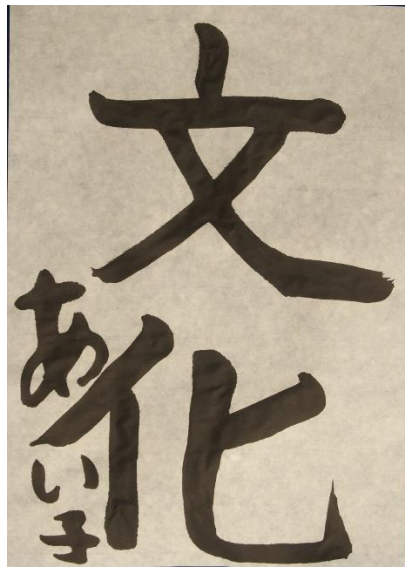 文化
あい子